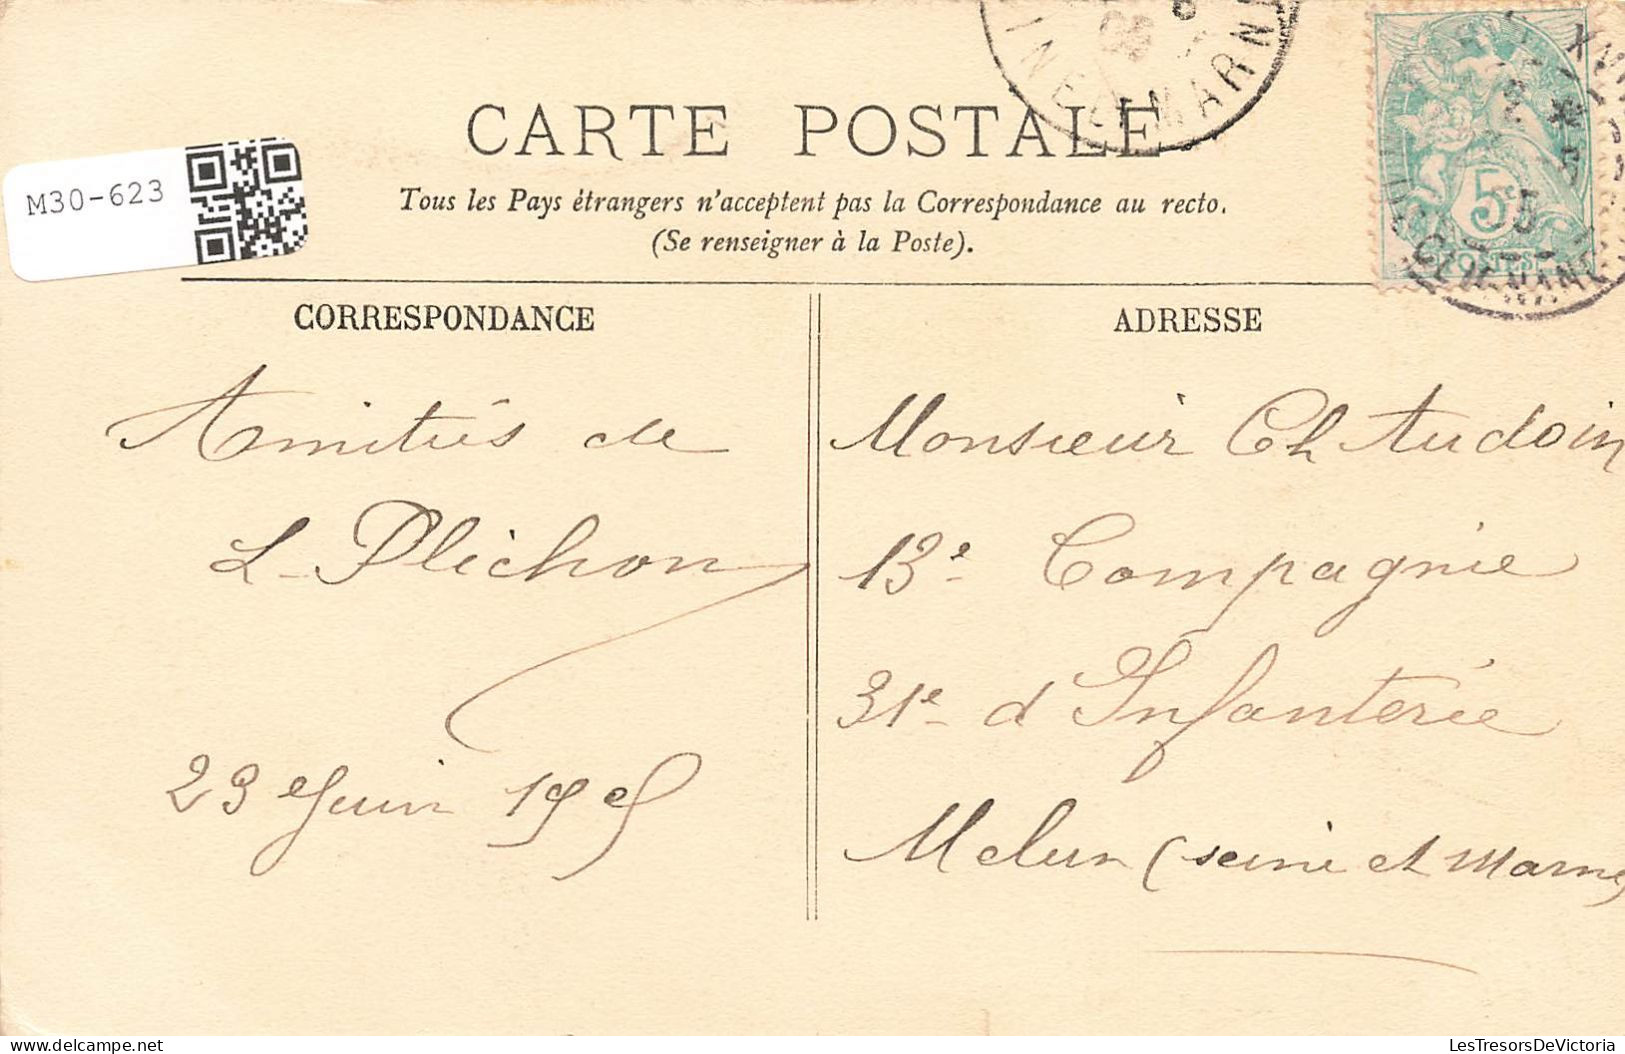 INE-ET-MARNE
CARTE POSTALE
M30-623
Tous les Pays étrangers n'acceptent pas la Correspondance au recto.
(Se renseigner à la Poste).
5c
POSTES
CORRESPONDANCE
Amitiés de
L. Plichon
23 Juin 1905
ADRESSE
Monsieur Ch Audoin
13e Compagnie
31e d'Infanterie
Melun (Seine et Marne)
Delcampe.net
LesTresorsDeVictoria